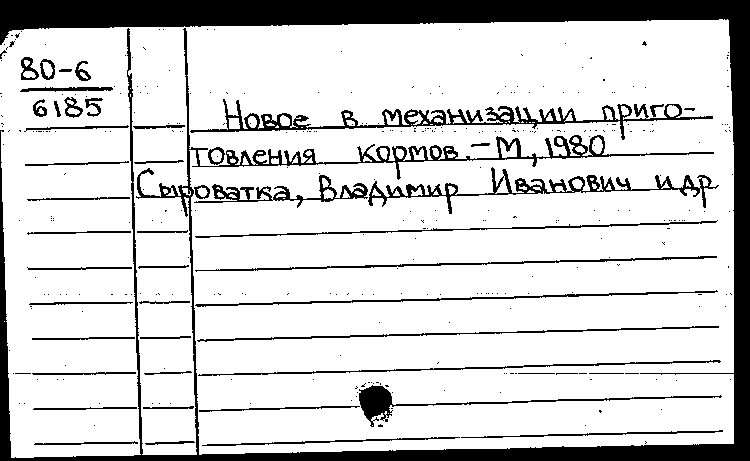 80-6
6185
Новое в механизации приго-
товления кормов.-М, 1980
Сыроватка, Владимир Иванович и др